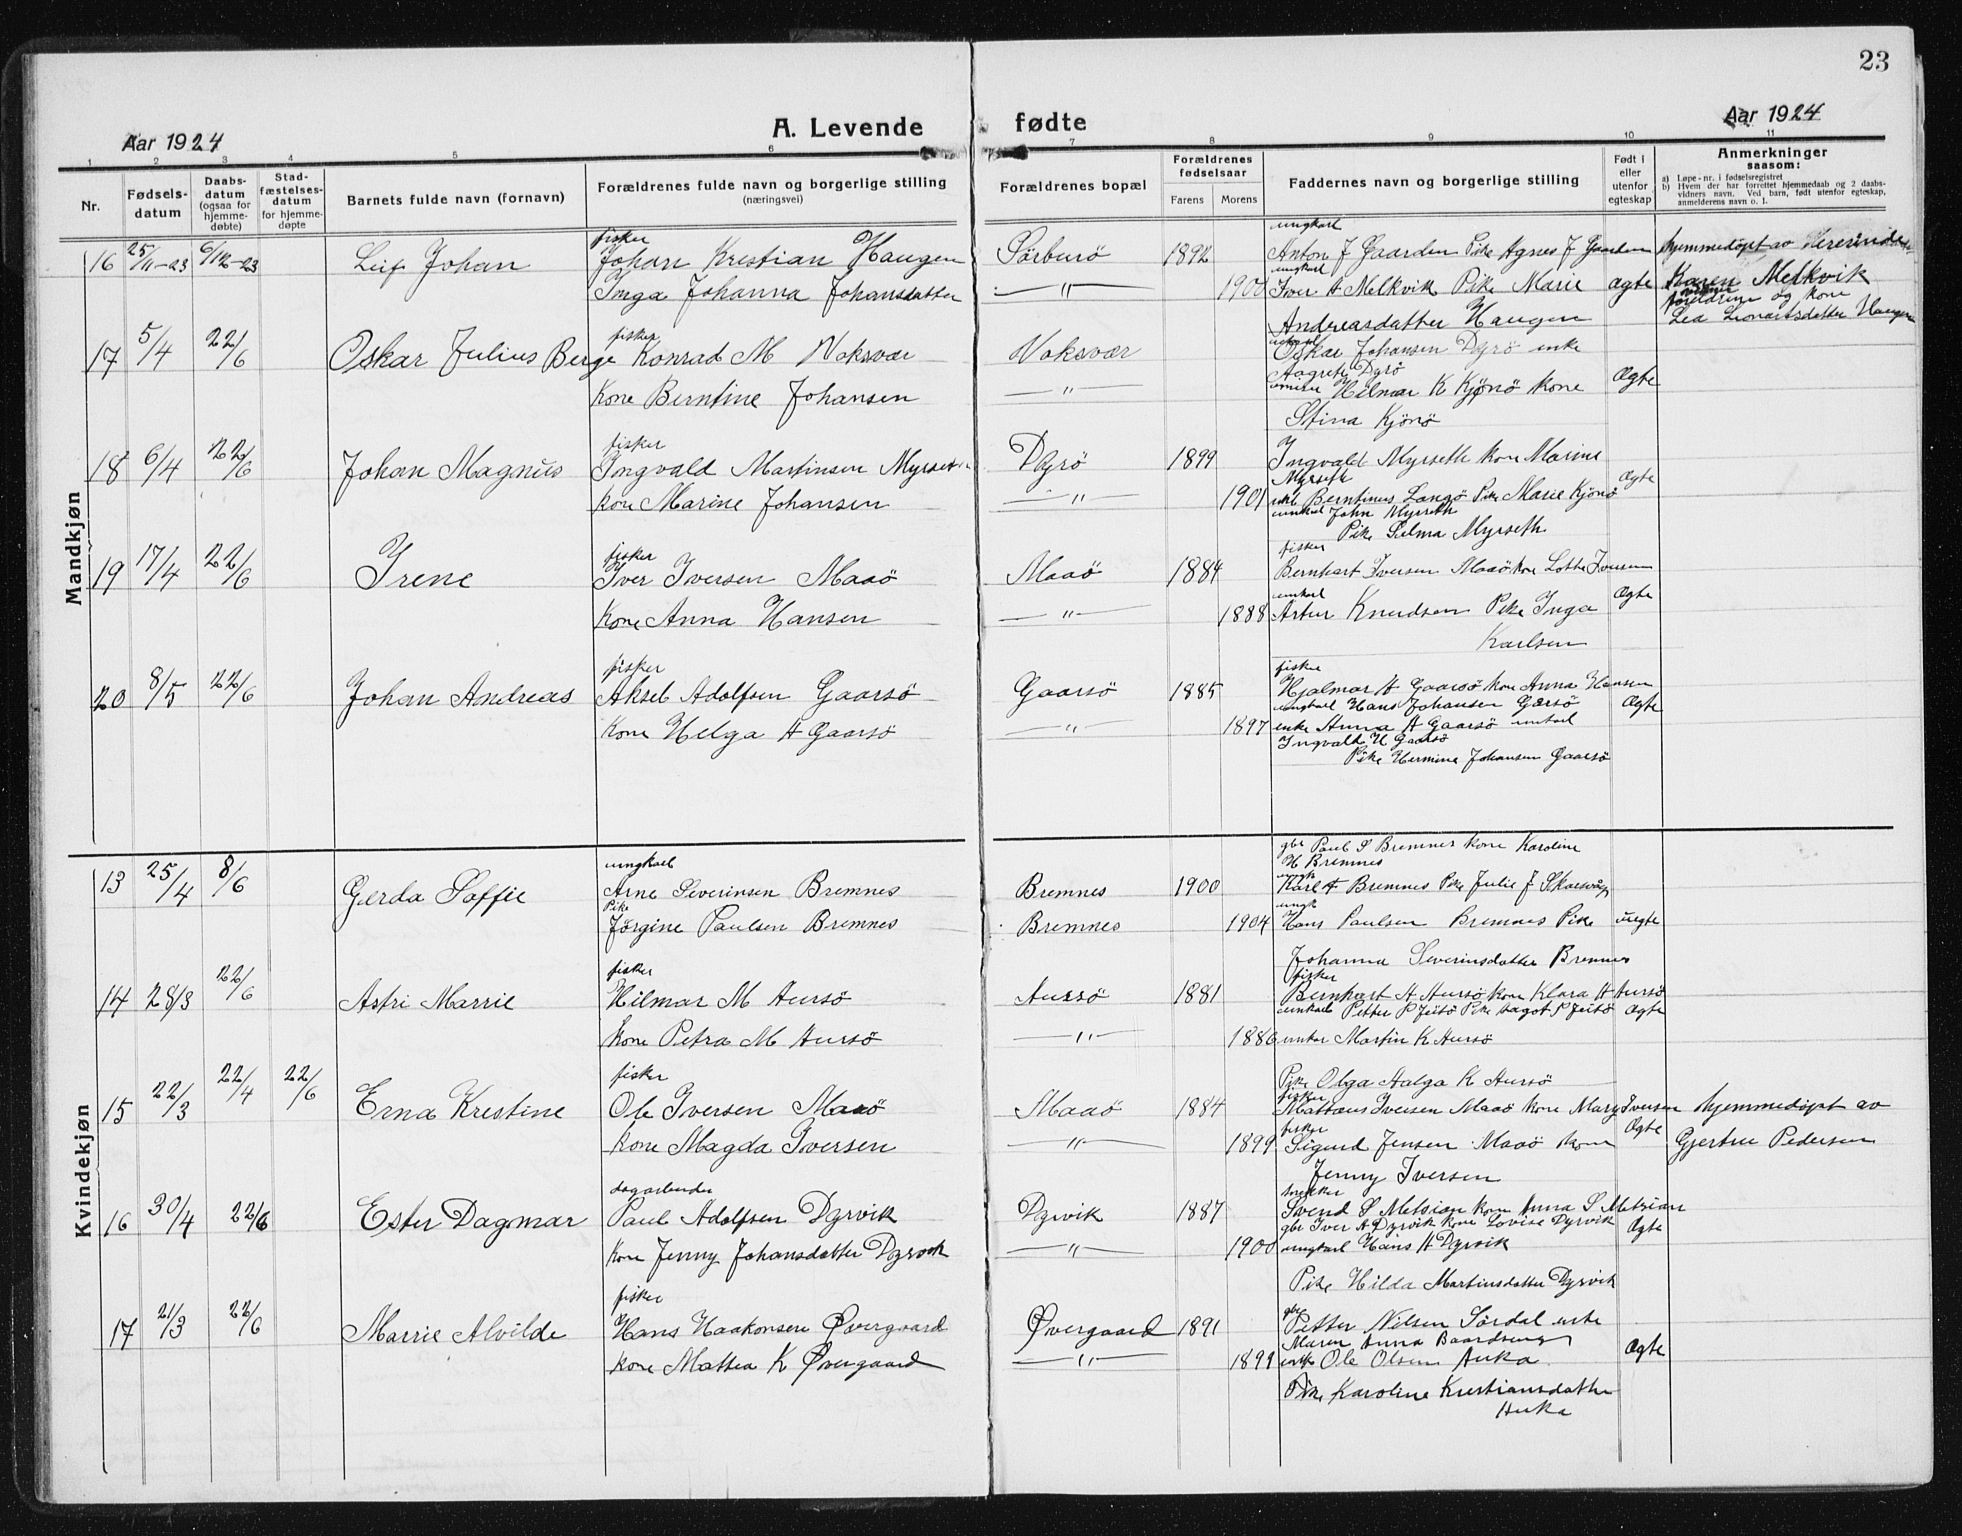 23
Aar 1924
A. Levende fødte
Aar 1924
1 2 3 4 5 6 7 8 9 10 11
Nr.
Fødsels-
datum
Daabs-
datum
(ogsaa for
hjemme-
døbte)
Stad-
fæstelses-
datum
for hjemme-
døpte
Barnets fulde navn (fornavn)
Forældrenes fulde navn og borgerlige stilling
(næringsvei)
Forældrenes bopæl
Forældrenes
fødselsaar
Farens Morens
Faddernes navn og borgerlige stilling
Født i
eller
utenfor
egteskap
Anmerkninger
saasom:
a) Løpe-nr. i fødselsregistret
b) Hvem der har forrettet hjemmedaab og 2 daabs-
vidners navn. Ved barn, født utenfor egteskap,
anmelderens navn o. l.
Mandkjøn
16 25/11-23 6/12-23 Leif Johan
fisker
Johan Kristian Haugen
Inga Johanna Johansdatter
Sörburö 1892
—"— 1900
ungkarl
Anton J Gaarden Pike Agnes J Gaarden
ungkarl
Iver A Melkvik Pike Marie
Andreasdatter Haugen
ægte
hjemmedöpt av
Karen Melkvik
foreldrene og kone
Lea Leonartsdatter Haugen
17 5/4 22/6 Oskar Julius Berge
fisker
Konrad M Voksvær
Kone Berntine Johansen
Voksvær
—"—
Oskar Johansen Dyrö enke
Aagrete Dyrö
Hilmar K Kjönö kone
Stina Kjönö
Ægte
18 6/4 22/6 Johan Magnus
fisker
Ingvald Martinsen Myrset
kone Marine Johansen
Dyrö 1899
—"— 1901
Ingvald Myrseth kone Marine
Myrseth
Berntinus Langö Pike Marie Kjönö
John Myrseth
Pike Selma Myrseth
Ægte
19 17/4 22/6 Irene
fisker
Iver Iversen Maaö
kone Anna Hansen
Maaö 1884
—"— 1888
fisker
Bernhart Iversen Maaö kone Lotte Iversen
Artur Knudsen Pike Inga
Karlsen
Ægte
20 8/5 22/6 Johan Andreas
fisker
Aksel Adolfsen Gaarsö
kone Helga A Gaarsö
Gaarsö 1885
—"— 1897
fisker
Hjalmar A Gaarsö kone Anna Hansen
ungkarl Hans Johansen Gærsö
enke Anna A Gaarsö
Ingvald H Gaarsö
Pike Hermine Johansen Gaarsö
Ægte
Kvindekjøn
13 25/4 8/6 Gerda Soffie
ungkarl
Arne Severinsen Bremnes
Pike
Jörgine Paulsen Bremnes
Bremnes 1900
Bremnes 1904
gbr Paul S Bremnes kone Karoline
H Bremnes
ungk
Karl A Bremnes Pike Julie J Skarsvåg
ungk
Hans Paulsen Bremnes Pike
Johanna Severinsdatter Bremnes
uegte
14 28/3 22/6 Astri Marrie
fisker
Hilmar M Aursö
kone Petra M Aursö
Aursö 1881
—"— 1886
fisker
Bernhart A Aursö kone Klara A Aursö
Petter P Jeitö Pike Dagot P Jeitö
Martin K Aursö
Pike Olga Halga K Aursö
Ægte
15 22/3 22/4 22/6 Erna Krestine
fisker
Ole Iversen Maaö
kone Magda Iversen
Maaö 1884
—"— 1899
fisker
Mattæus Iversen Maaö kone Mary Iversen
fisker
Sigurd Jensen Maaö kone
Jenny Iversen
Ægte
hjemmedöpt av
Gjertru Pedersen
16 30/4 22/6 Ester Dagmar
dagarbeider
Paul Adolfsen Dyrvik
kone Jenny Johansdatter Dyrvik
Dyrvik 1887
—"— 1900
Svend S Melsian kone Anna S Melsian
gbr Iver A Dyrvik kone Lovise Dyrvik
ungkarl Hans A Dyrvik
Pike Hilda Martinsdatter Dyrvik
Ægte
17 21/3 22/6 Marrie Alvilde
fisker
Hans Haakonsen Øvergaard
kone Mattea K Øvergaard
Øvergaard 1891
—"— 1899
gbr
Petter Nilsen Sördal enke
Maren Anna Baardseng
Ole Olsen Auka
Pike Karoline Kristiansdatter
Auka
Ægte